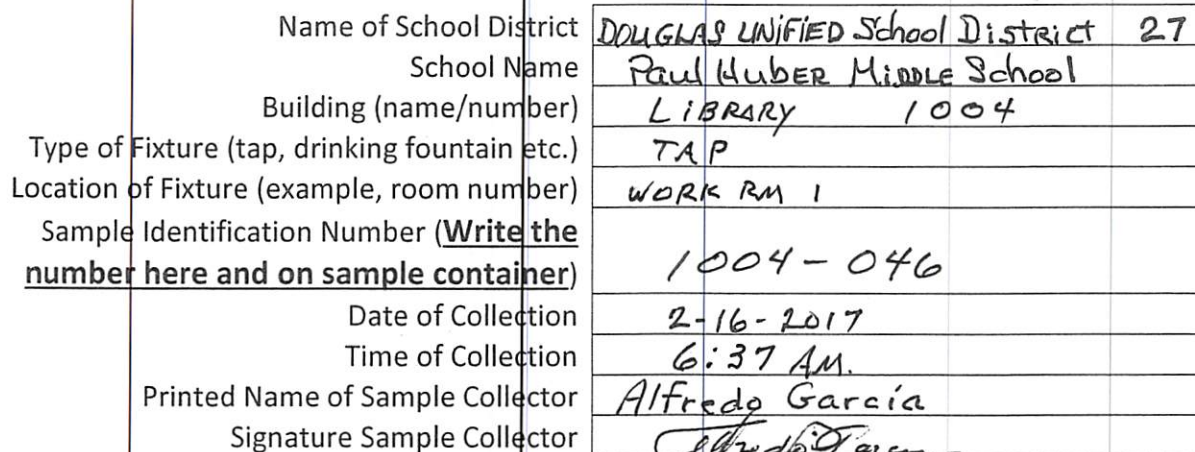 Name of School District DOUGLAS UNiFiED School District 27
School Name Paul Huber Middle School
Building (name/number) LiBRARY 1004
Type of Fixture (tap, drinking fountain etc.) TAP
Location of Fixture (example, room number) WORK RM 1
Sample Identification Number (Write the
number here and on sample container) 1004-046
Date of Collection 2-16-2017
Time of Collection 6:37 AM.
Printed Name of Sample Collector Alfredo Garcia
Signature Sample Collector